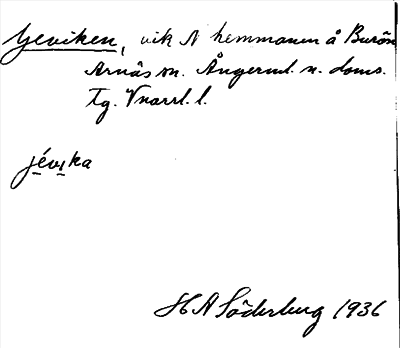 Yeviken, vik N hemmanen å Burön
Arnäs sn. Ångerml. n. doms.
tg. Vnorrl. l.
jévika
H A Söderberg 1936